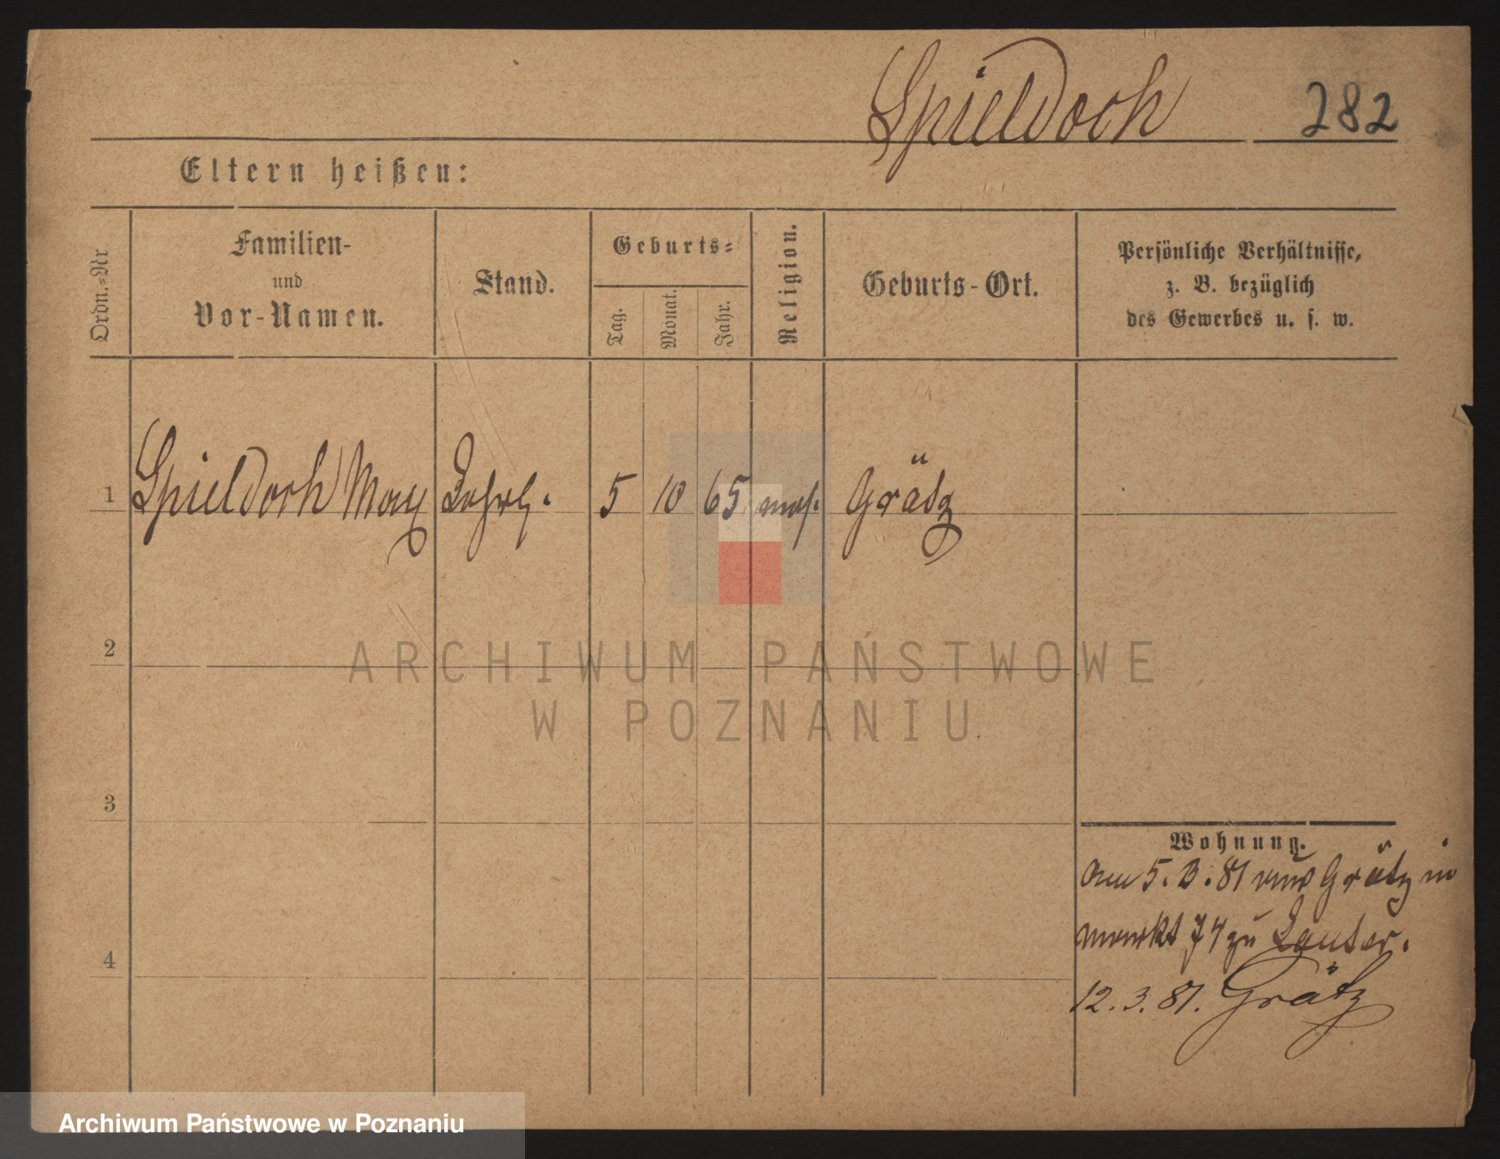 Spieldoch 282
Eltern heißen:
Ordn.-Nr
Familien-
und
Vor-Namen.
Stand.
Geburts-
Tag.
Monat.
Jahr.
Religion.
Geburts-Ort.
Persönliche Verhältnisse,
z. B. bezüglich
des Gewerbes u. s. w.
1 Spieldoch Max Lehrl. 5 10 65 mos. Grätz
2
3
4
Wohnung.
5. 3. 81 aus Grätz in
markt 74 zu Lauter.
12. 3. 81. Grätz
ARCHIWUM PAŃSTWOWE
W POZNANIU
Archiwum Państwowe w Poznaniu